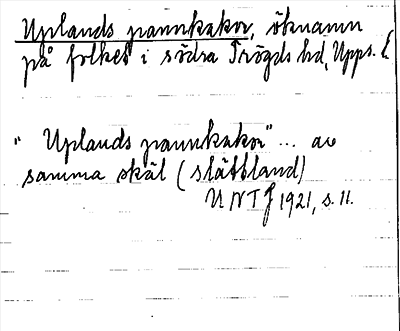 Uplands pannkakor, öknamn
på folket i södra Trögds hd, Upps. l.
"Uplands pannkakor" ... av
samma skäl (slättland)
UNTJ 1921, s. 11.